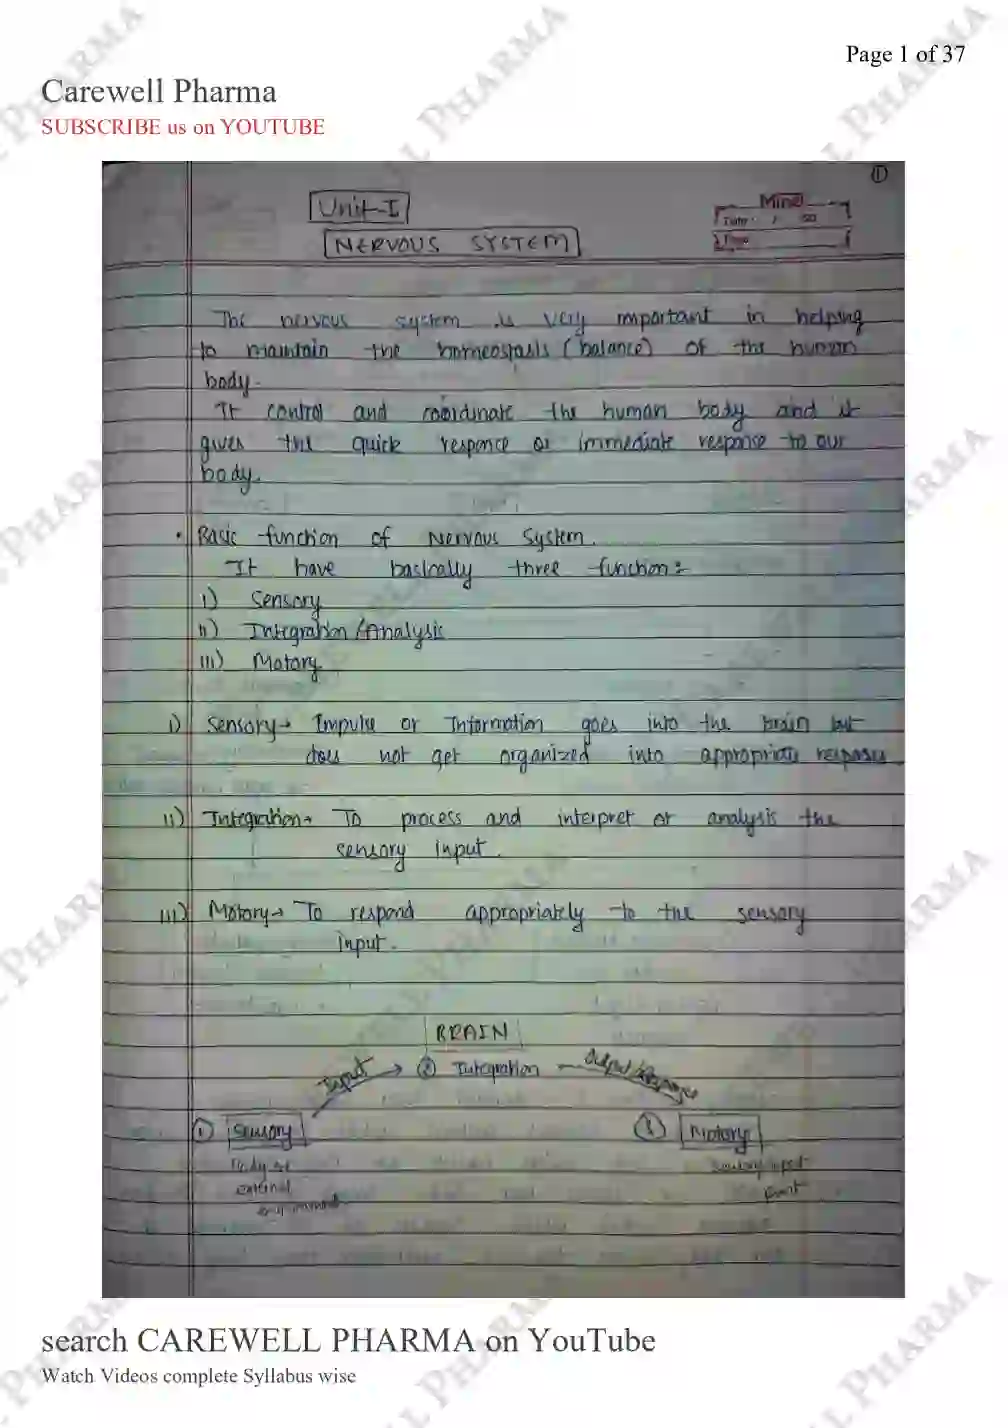 Page 1 of 37
Carewell Pharma
SUBSCRIBE us on YOUTUBE
1
Unit-I
NERVOUS SYSTEM
The nervous system is very important in helping
to maintain the homeostasis (balance) of the human
body.
It control and coordinate the human body and it
gives the quick responce or immediate response to our
body.
• Basic function of Nervous System.
It have basically three function:
i) Sensory
ii) Integration/Analysis
iii) Motory
i) Sensory→ Impulse or Information goes into the brain but
does not get organized into appropriate
ii) Integration→ To process and interpret or analysis the
sensory input.
iii) Motory→ To respond appropriately to the sensory
input.
BRAIN
Input → 2 Integration → Output/Response
1 Sensory
3 Motory
Body or
external
environment
sensory input
search CAREWELL PHARMA on YouTube
Watch Videos complete Syllabus wise